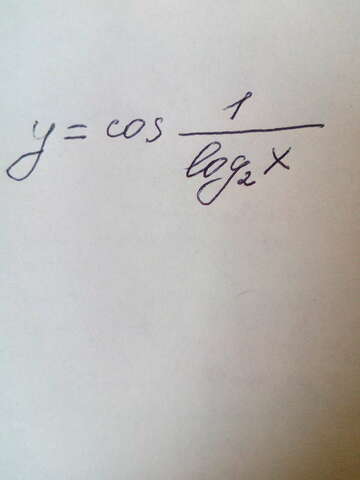 y = cos 1/log₂x